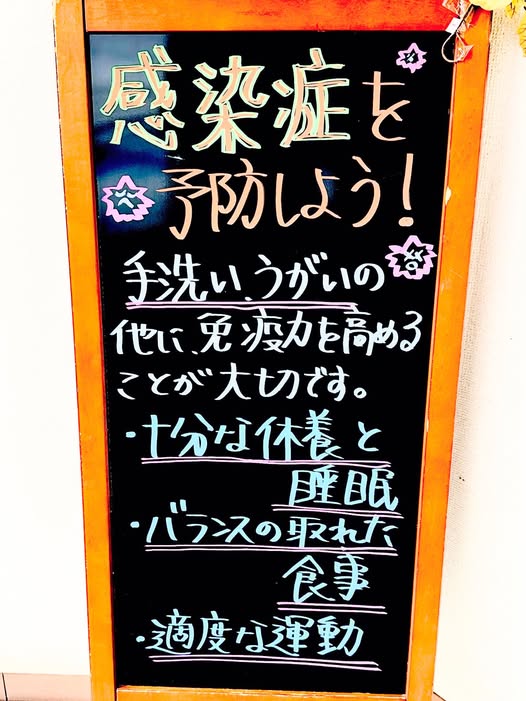 感染症を
予防しよう!
手洗い、うがいの
他に、免疫力を高める
ことが大切です。
・十分な休養と
睡眠
・バランスの取れた
食事
・適度な運動